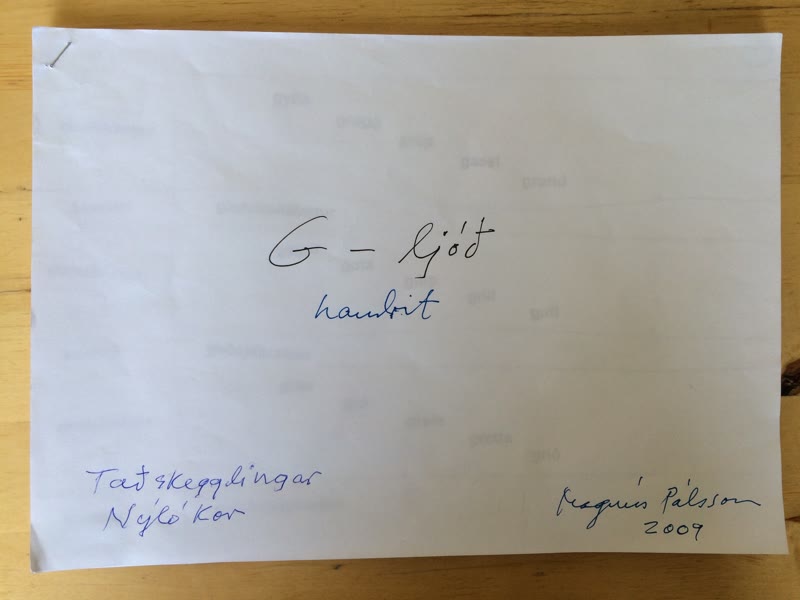 G - ljóð
handrit
Taðskegglingar
Nýló Kór
Magnús Pálsson
2009